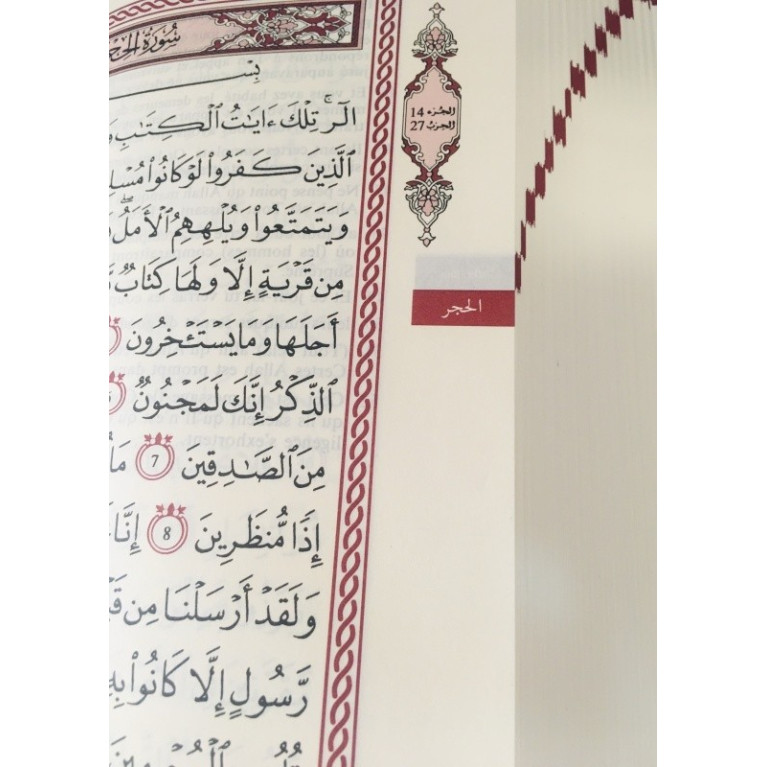 سُورَةُ الحِجْ
بِسْ
الٓرۚ تِلۡكَ ءَايَٰتُ ٱلۡكِتَٰبِ
ٱلَّذِينَ كَفَرُواْ لَوۡ كَانُواْ مُسۡلِ
وَيَتَمَتَّعُواْ وَيُلۡهِهِمُ ٱلۡأَمَلُۖ
مِن قَرۡيَةٍ إِلَّا وَلَهَا كِتَابٞ
أَجَلَهَا وَمَا يَسۡتَـٔۡخِرُونَ
ٱلذِّكۡرُ إِنَّكَ لَمَجۡنُونٞ
مِنَ ٱلصَّٰدِقِينَ 7 مَا
إِذٗا مُّنظَرِينَ 8 إِنَّا
وَلَقَدۡ أَرۡسَلۡنَا مِن قَ
رَّسُولٍ إِلَّا كَانُواْ بِهِ
الجزء 14
الحزب 27
الحجر